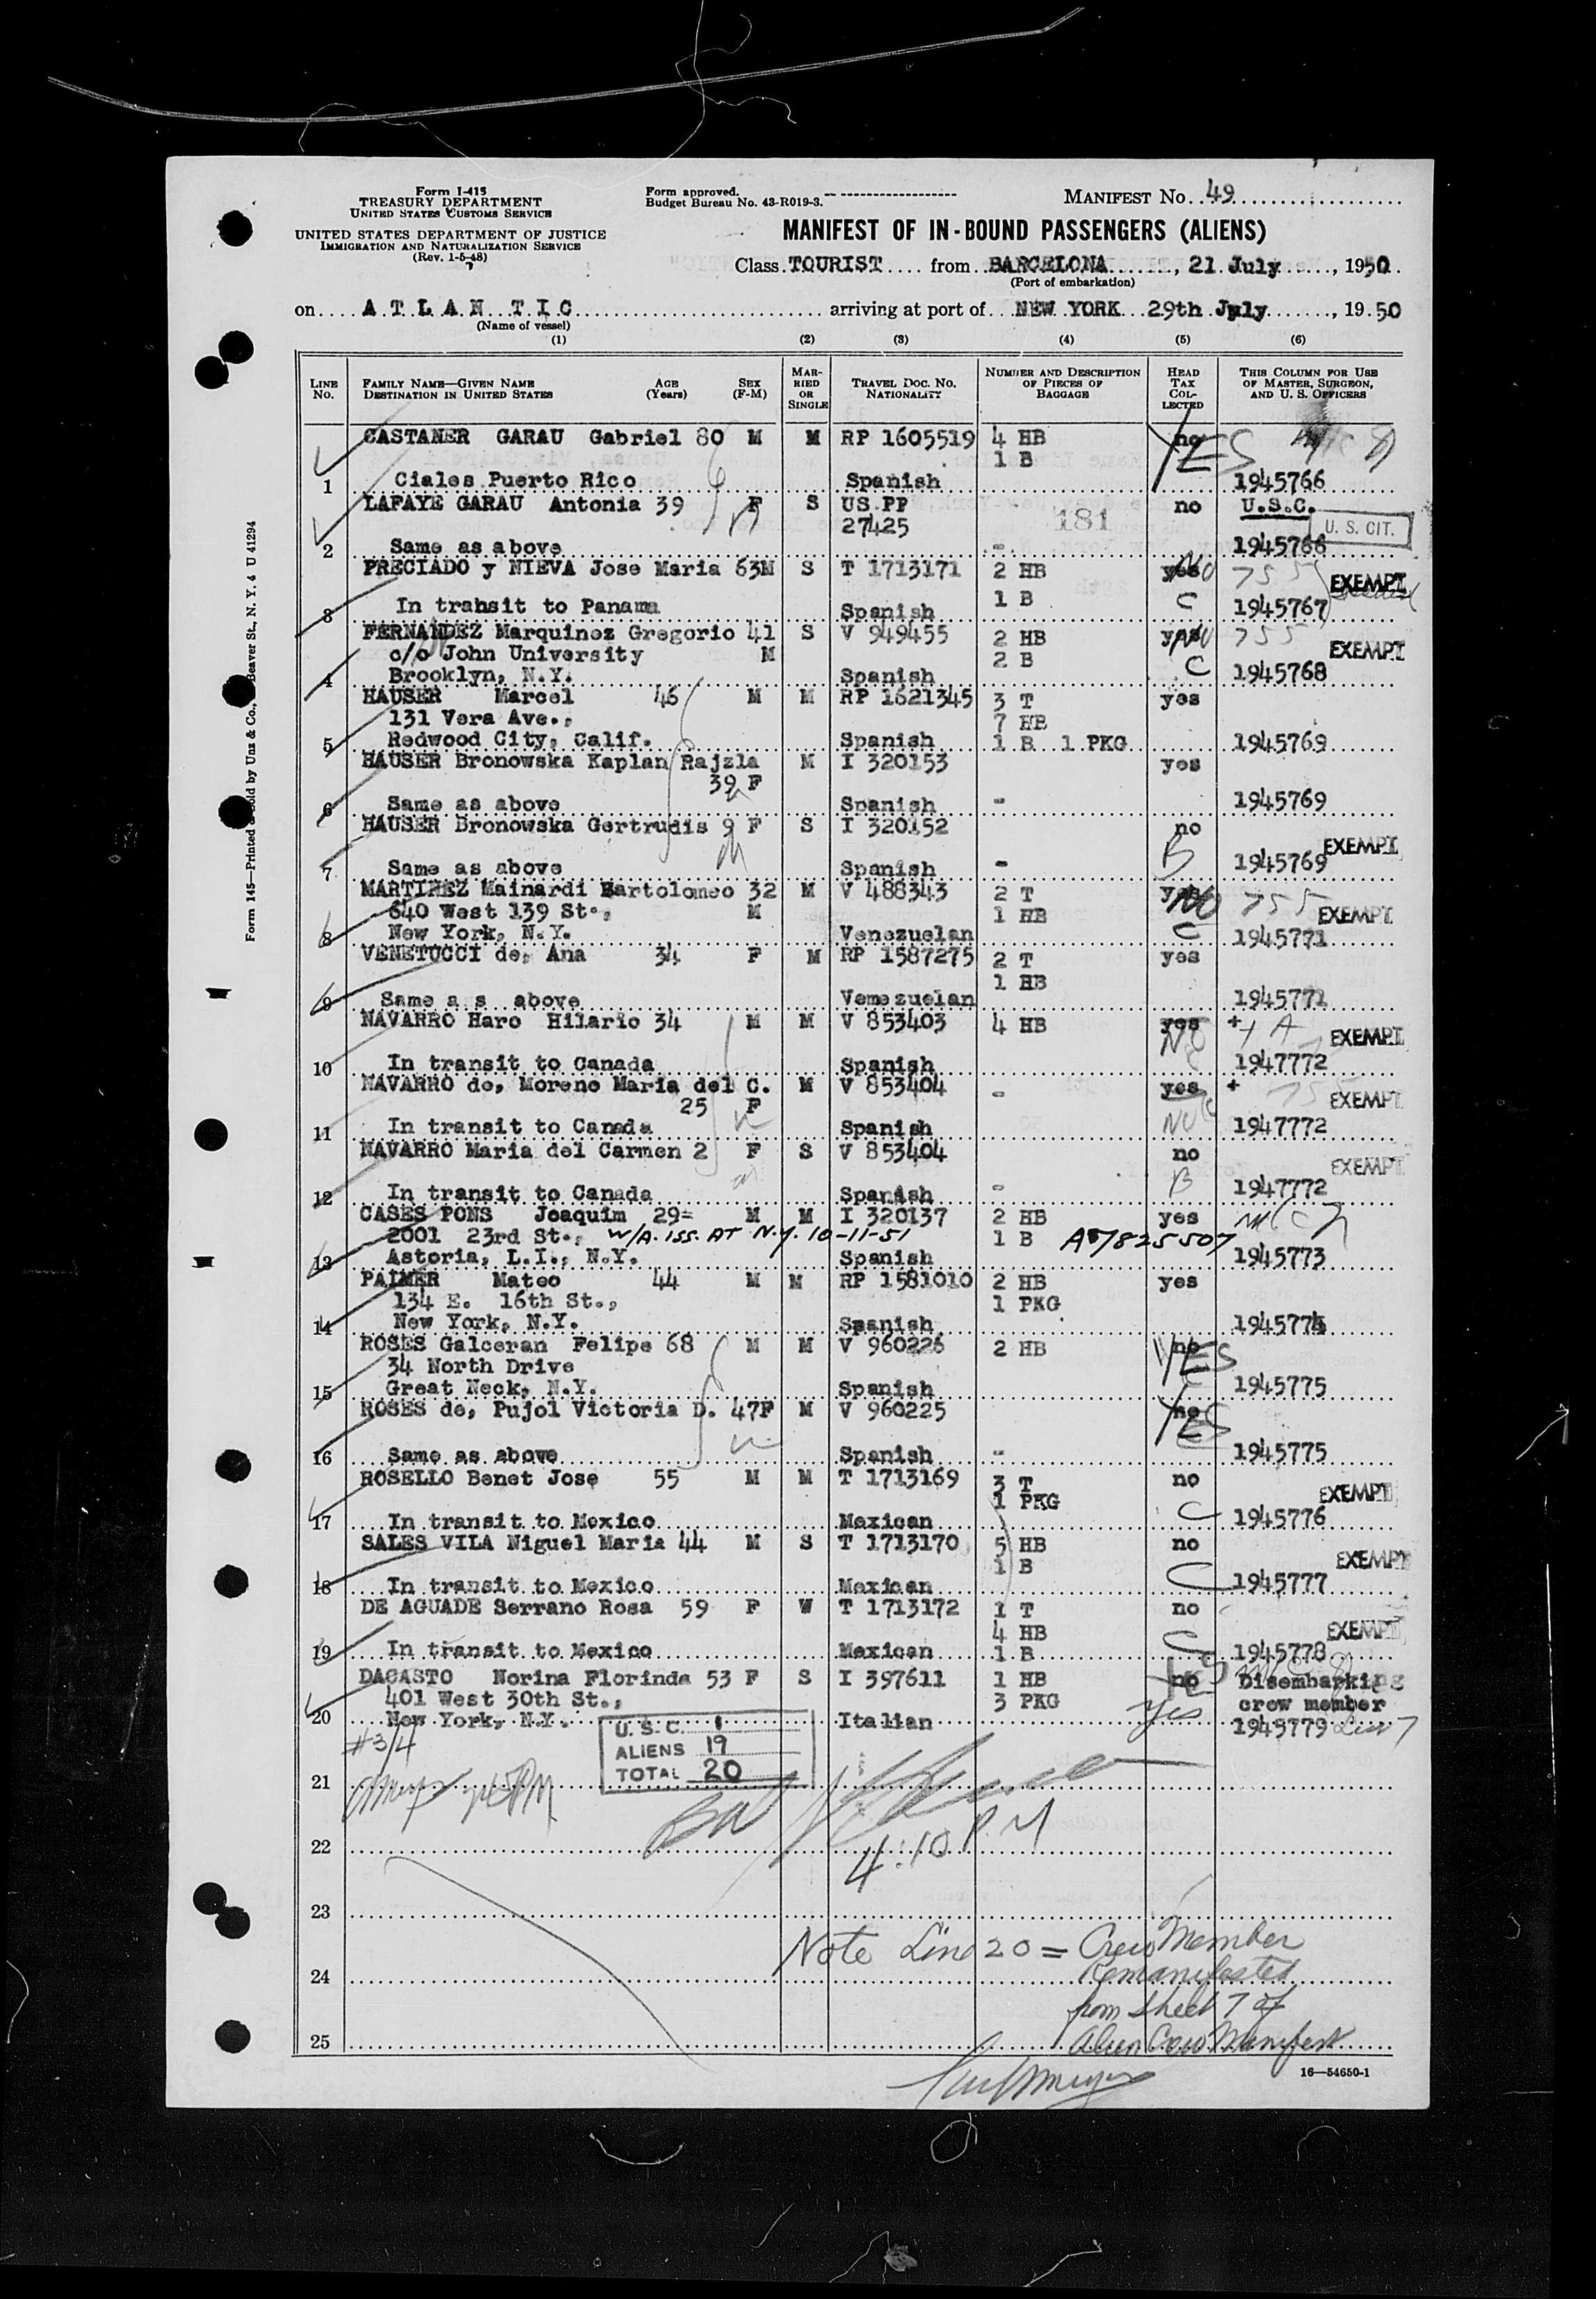 Form I-415
TREASURY DEPARTMENT
UNITED STATES CUSTOMS SERVICE
UNITED STATES DEPARTMENT OF JUSTICE
IMMIGRATION AND NATURALIZATION SERVICE
(Rev. 1-5-48)
Form approved.
Budget Bureau No. 43-R019-3.
MANIFEST No. 49
MANIFEST OF IN-BOUND PASSENGERS (ALIENS)
Class TOURIST from BARCELONA, 21 July, 1950
(Port of embarkation)
on A T L A N T I C arriving at port of NEW YORK 29th July, 1950
(Name of vessel)
(1) (2) (3) (4) (5) (6)
LINE No. FAMILY NAME—GIVEN NAME DESTINATION IN UNITED STATES AGE (Years) SEX (F-M) MARRIED OR SINGLE TRAVEL DOC. NO. NATIONALITY NUMBER AND DESCRIPTION OF PIECES OF BAGGAGE HEAD TAX COLLECTED THIS COLUMN FOR USE OF MASTER, SURGEON, AND U. S. OFFICERS
CASTANER GARAU Gabriel 80 M M RP 1605519 4 HB no YES
1 B
1 Ciales Puerto Rico Spanish 1945766
LAFAYE GARAU Antonia 39 F S US PP no U.S.C.
27425 181 U. S. CIT.
2 Same as above - 1945766
PRECIADO y NIEVA Jose Maria 63M S T 1713171 2 HB yes NO 755 EXEMPT
1 B C
3 In transit to Panama Spanish 1945767
FERNANDEZ Marquinez Gregorio 41 S V 949455 2 HB yes NO 755
c/o John University M 2 B C EXEMPT
4 Brooklyn, N.Y. Spanish 1945768
HAUSER Marcel 46 M M RP 1621345 3 T yes
131 Vera Ave., 7 HB
5 Redwood City, Calif. Spanish 1 B 1 PKG 1945769
HAUSER Bronowska Kaplan Rajzla M I 320153 yes
39 F
6 Same as above Spanish - 1945769
HAUSER Bronowska Gertrudis 9 F S I 320152 no
B EXEMPT
7 Same as above Spanish - 1945769
MARTINEZ Mainardi Bartolomeo 32 M V 488343 2 T yes NO 755
640 West 139 St., M 1 HB EXEMPT
8 New York, N.Y. Venezuelan C 1945771
VENETUCCI de, Ana 34 F M RP 1587275 2 T yes
1 HB
9 Same a s above Vemezuelan 1945771
NAVARRO Haro Hilario 34 M M V 853403 4 HB yes + EXEMPT
10 In transit to Canada Spanish 1947772
NAVARRO de, Moreno Maria del C. M V 853404 - yes + 755
25 F EXEMPT
11 In transit to Canada Spanish 1947772
NAVARRO Maria del Carmen 2 F S V 853404 no
B EXEMPT
12 In transit to Canada Spanish - 1947772
CASES PONS Joaquim 29= M M I 320137 2 HB yes
2001 23rd St., W/A. ISS. AT N.Y. 10-11-51 1 B A 7825507
13 Astoria, L.I., N.Y. Spanish 1945773
PALMER Mateo 44 M M RP 1581010 2 HB yes
134 E. 16th St., 1 PKG
14 New York, N.Y. Spanish 1945774
ROSES Galceran Felipe 68 M M V 960226 2 HB no YES
34 North Drive
15 Great Neck, N.Y. Spanish 1945775
ROSES de, Pujol Victoria D. 47F M V 960225 no YES
16 Same as above Spanish - 1945775
ROSELLO Benet Jose 55 M M T 1713169 3 T no
1 PKG C EXEMPT
17 In transit to Mexico Mexican 1945776
SALES VILA Niguel Maria 44 M S T 1713170 5 HB no
1 B C EXEMPT
18 In transit to Mexico Mexican 1945777
DE AGUADE Serrano Rosa 59 F W T 1713172 1 T no
4 HB C EXEMPT
19 In transit to Mexico Mexican 1 B 1945778
DACASTO Norina Florinda 53 F S I 397611 1 HB no YES Disembarking
401 West 30th St., 3 PKG yes crew member
20 New York, N.Y. Italian 1945779
U. S. C. 1
ALIENS 19
TOTAL 20
#3/4
21
4:10 PM
22
23
Note Line 20 = Crew Member
24 Remanifested
from Sheet 7 of
25 Alien Crew Manifest
16—54650-1
Form 145—Printed
Sold by Unz & Co.,
Beaver St., N. Y. 4 U 41294